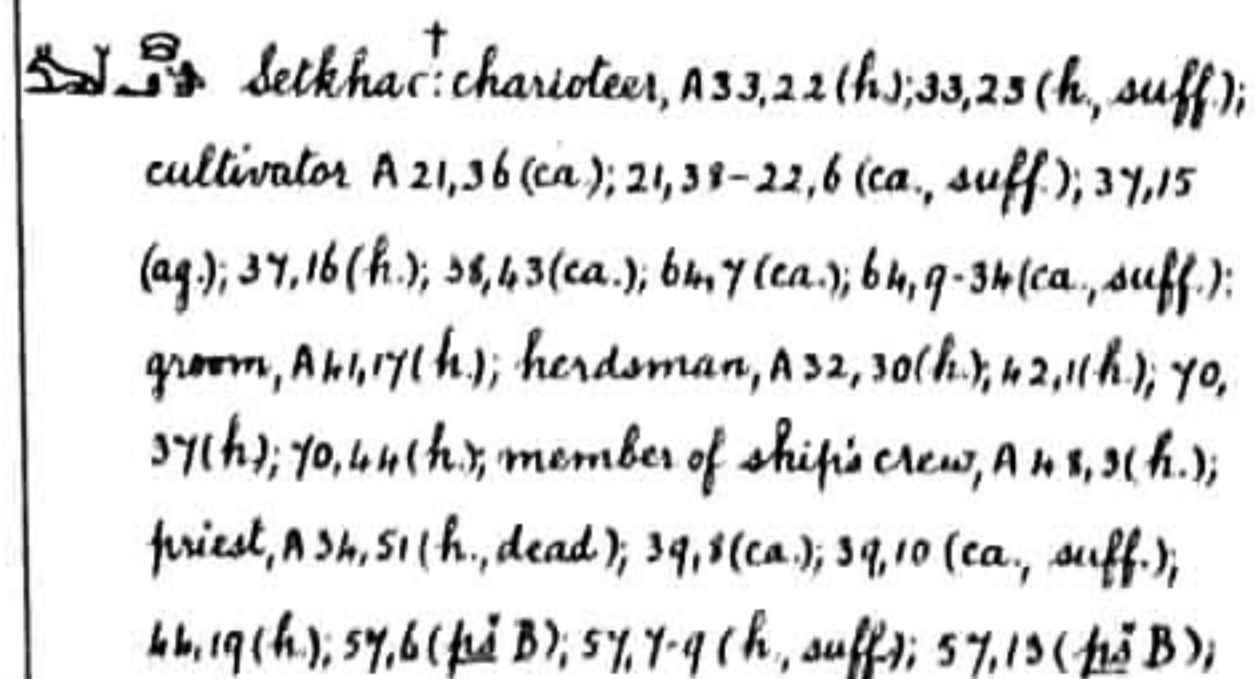 Setkhaꜥ†: charioteer, A33,22(h.);33,23(h., suff.);
cultivator A21,36(ca.); 21,38-22,6(ca., suff.); 37,15
(ag.); 37,16(h.); 38,43(ca.); 64,7(ca.); 64,9-34(ca., suff.):
groom, A41,17(h.); herdsman, A32,30(h.); 42,1(h.); 70,
37(h.); 70,44(h.); member of ship's crew, A48,3(h.);
priest, A34,51(h., dead); 39,8(ca.); 39,10(ca., suff.);
44,19(h.); 57,6(pš B); 57,7-9(h., suff.); 57,13(pš B);